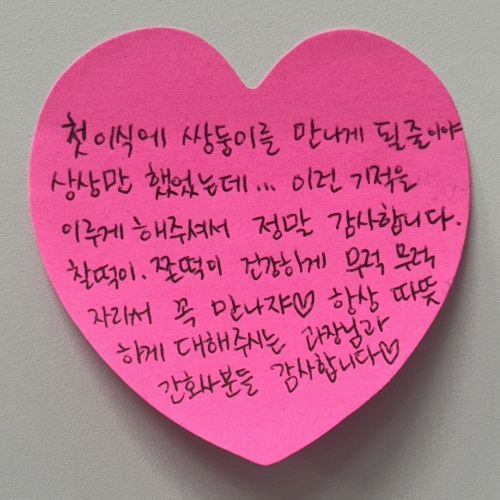 첫 이식에 쌍둥이를 만나게 될 줄이야
상상만 했었는데... 이런 기적을
이루게 해주셔서 정말 감사합니다.
찰떡이. 짤떡이 건강하게 무럭 무럭
자라서 꼭 만나쟈♡ 항상 따뜻
하게 대해주시는 과장님과
간호사분들 감사합니다♡